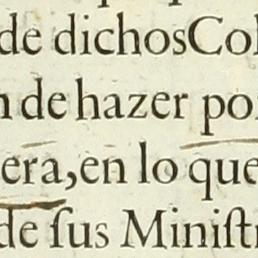 de dichos Col
n de hazer por
era, en lo que
de ſus Miniſtr